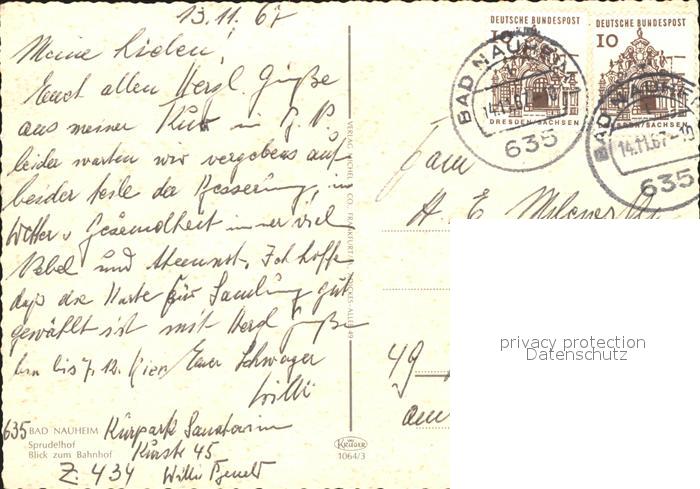 13.11.67
Meine Lieben!
Euch allen Herzl. Grüße
aus meiner Kur in
leider warten wir vergebens auf
beider seits der Besserung, im
Wetter u. Gesundheit immer viel
Nebel und Ich hoffe
daß die Karte für Samlung gut
gewählt ist mit Herzl Grüßen
bin bis 7.12. hier Euer Schwager
Willi
635 BAD NAUHEIM Kurpark Sanatorium
Sprudelhof
Blick zum Bahnhof Kurstr 45
Z. 434 Willi
VERLAG MICHEL & CO. FRANKFURT
ALLEE 49
KRÜGER
1064/3
DEUTSCHE BUNDESPOST
10
DRESDEN/SACHSEN
DEUTSCHE BUNDESPOST
10
DRESDEN/SACHSEN
BAD NAUHEIM
14.11.67
635
BAD NAUHEIM
14.11.67
635
Fam
H. E.
49
am
privacy protection
Datenschutz